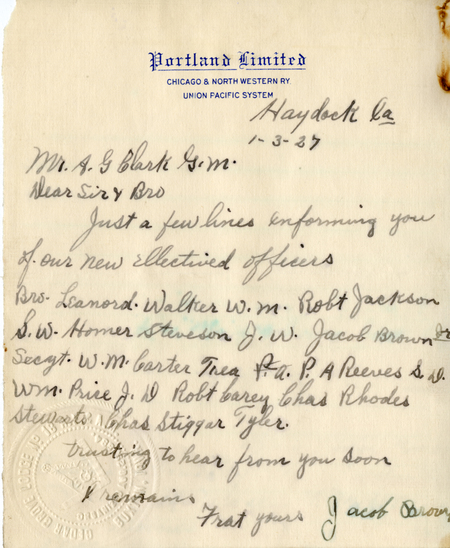 Portland Limited
CHICAGO & NORTH WESTERN RY.
UNION PACIFIC SYSTEM
Haydock Ia
1-3-27
Mr. A. G Clark G. M.
Dear Sir & Bro
Just a few lines enforming you
of our new ellectived officers
Bro. Leanord. Walker W. M. Robt Jackson
S. W. Homer Steveson J. W. Jacob Brown Jr
Secyt. W. M. Carter Trea P. A. P. A Reeves S. D.
Wm. Price J. D Robt Carey Chas Rhodes
Stewarts Chas Stiggar Tyler.
trusting to hear from you soon
I remains
Frat yours Jacob Brown
GROVE LODGE No